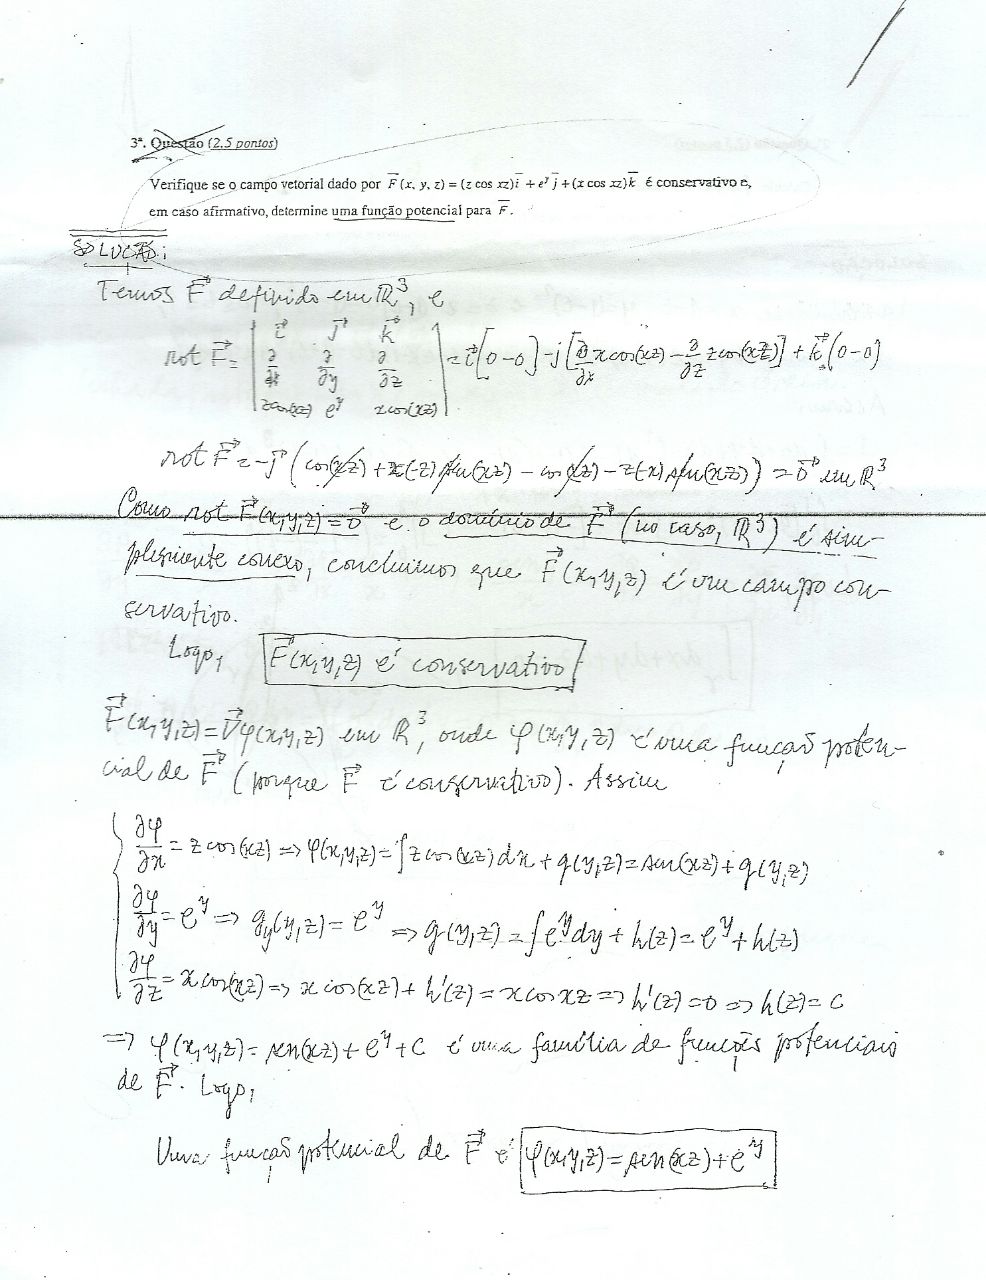 3ª. Questão (2,5 pontos)
Verifique se o campo vetorial dado por F̅(x, y, z) = (z cos xz)i̅ + e^y j̅ + (x cos xz)k̅ é conservativo e,
em caso afirmativo, determine uma função potencial para F̅.
SOLUÇÃO:
Temos F⃗ definido em ℝ³, e
i⃗ j⃗ k⃗
rot F⃗ = | ∂/∂x ∂/∂y ∂/∂z | = i⃗[0-0] - j[∂/∂x xcos(xz) - ∂/∂z zcos(xz)] + k⃗(0-0)
zcos(xz) e^y xcos(xz)
rot F⃗ = -j⃗ (cos(xz) + x(-z) sen(xz) - cos(xz) - z(-x) sen(xz)) = 0⃗ em ℝ³
Como rot F⃗(x,y,z) = 0⃗ e o domínio de F⃗ (no caso, ℝ³) é sim-
plesmente conexo, concluimos que F⃗(x,y,z) é um campo con-
servativo.
Logo, F⃗(x,y,z) é conservativo
F⃗(x,y,z) = ∇⃗φ(x,y,z) em ℝ³, onde φ(x,y,z) é uma função poten-
cial de F⃗ (porque F⃗ é conservativo). Assim
∂φ/∂x = z cos(xz) => φ(x,y,z) = ∫z cos(xz) dx + g(y,z) = sen(xz) + g(y,z)
∂φ/∂y = e^y => g_y(y,z) = e^y => g(y,z) = ∫e^y dy + h(z) = e^y + h(z)
∂φ/∂z = x cos(xz) => x cos(xz) + h'(z) = x cos xz => h'(z) = 0 => h(z) = C
=> φ(x,y,z) = sen(xz) + e^y + C é uma família de funções potenciais
de F⃗. Logo,
Uma função potencial de F⃗ é φ(x,y,z) = sen(xz) + e^y